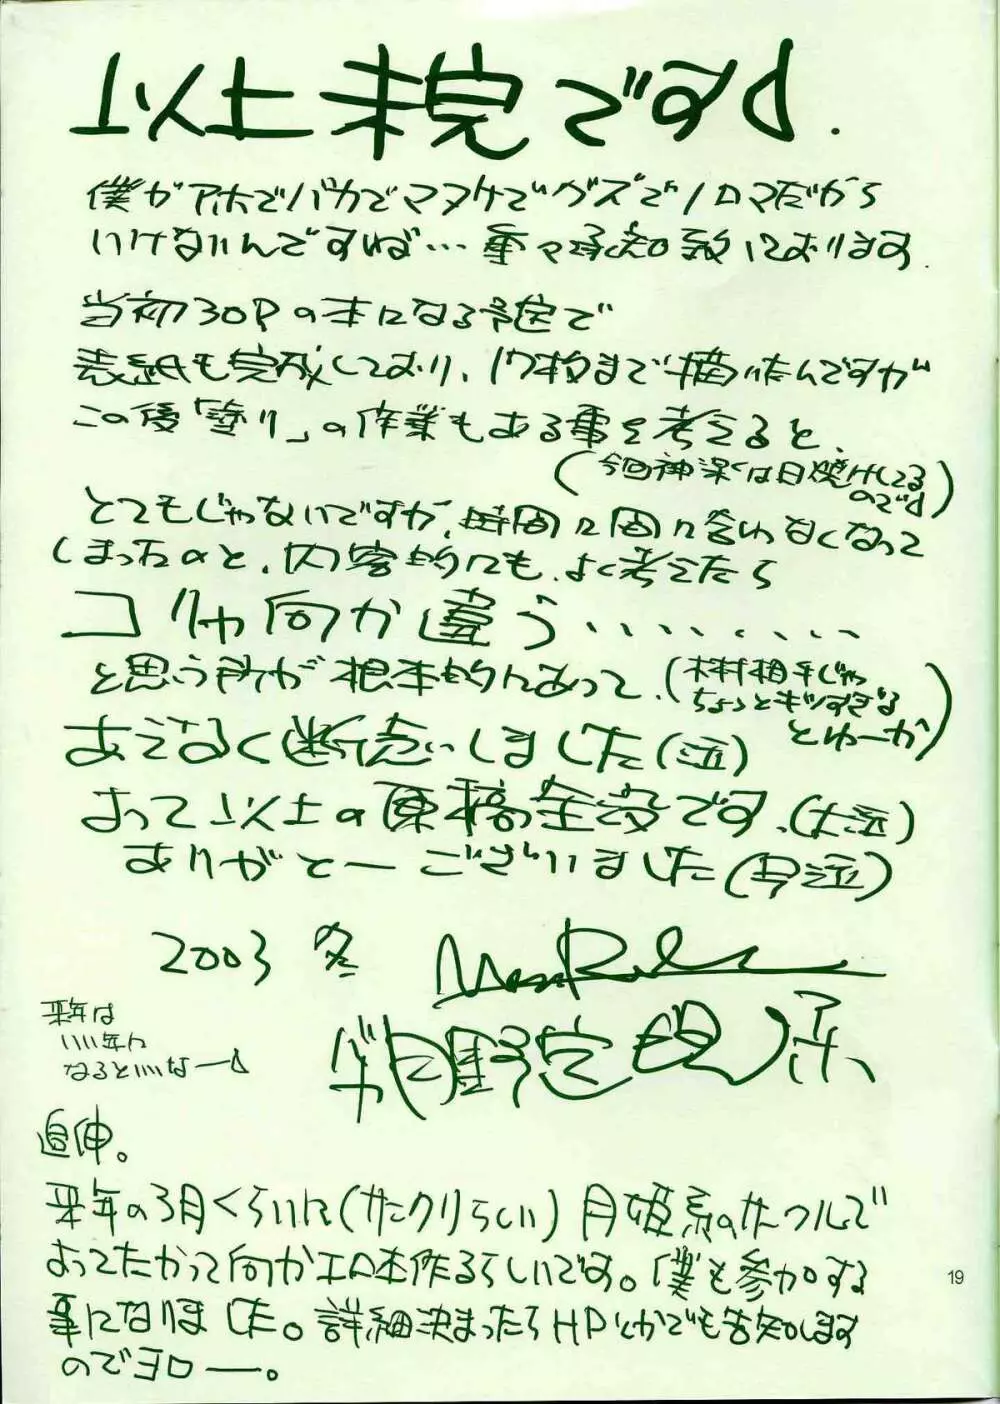 以上未完ですd.
僕がアホでバカでマヌケでグズでノロマだから
いけないんですねば…重々承知致しております.
当初30Pの本になる予定で
表紙も完成しており、17枚まで描いたんですが
この後「塗り」の作業もある事を考えると、
(今回神深くは日焼けしてる
のでd)
とてもじゃないですが、時間に間に合わなくなって
しまったのと、内容的にも、よく考えたら
コリャ何か違う………
と思う所が根本的にあって、
(木村相手じゃ
ちょっとキツすぎる
とゆーか)
あえなく断念しました(泣)
よって以上の原稿全没です、(大泣)
ありがとーございました(号泣)
2003 冬
来年は
いい年に
なるといいなーd
追伸。
来年の3月くらいに(サンクリらしい)月姫系のサークルで
よってたかって何かエロ本作るらしいです。僕も参加する
事になりました。詳細決まったらHPとかでも告知します
のでヨロー。
19